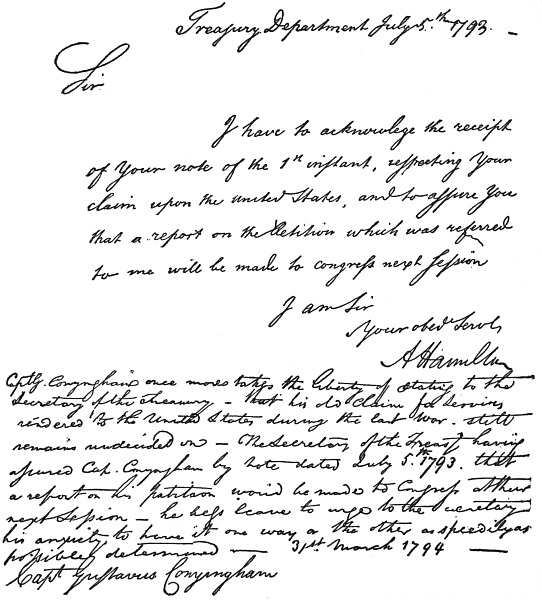 Treasury Department July 5.th 1793.
Sir
I have to acknowlege the receipt
of your note of the 1st instant, respecting your
claim upon the United States, and to assure you
that a report on the Petition which was referred
to me will be made to congress next Session
I am Sir
Your obed Servt
A Hamilton
Capt G. Conyngham once more takes the liberty of stating to the
Secretary of the treasury - that his old Claim for Services
rendered to the United States during the last War - still
remains undecided on - The Secretary of the Treasy having
assured Cap. Conyngham by Note dated July 5.th 1793. that
a report on his petition would be made to Congress at their
next Session - he begs leave to urge to the Secretary
his anxiety to have it one way or the other as speedily as
possible determined - 31st March 1794 -
Capt Gustavus Conyngham